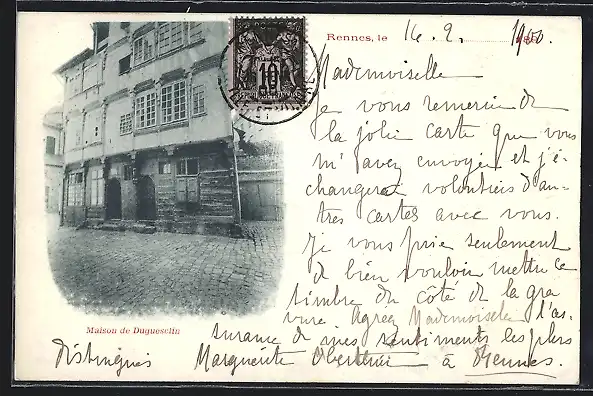 Rennes, le 16. 2. 1900.
Mademoiselle
Je vous remercie de
la jolie carte que vous
m'avez envoyée et j'é-
changerai volontiers d'au-
tres cartes avec vous.
Je vous prie seulement
de bien vouloir mettre le
timbre du côté de la gra
vure. Agréez Mademoiselle l'as-
surance de mes sentiments les plus
distingués Marguerite à Rennes.
10
Maison de Duguesclin